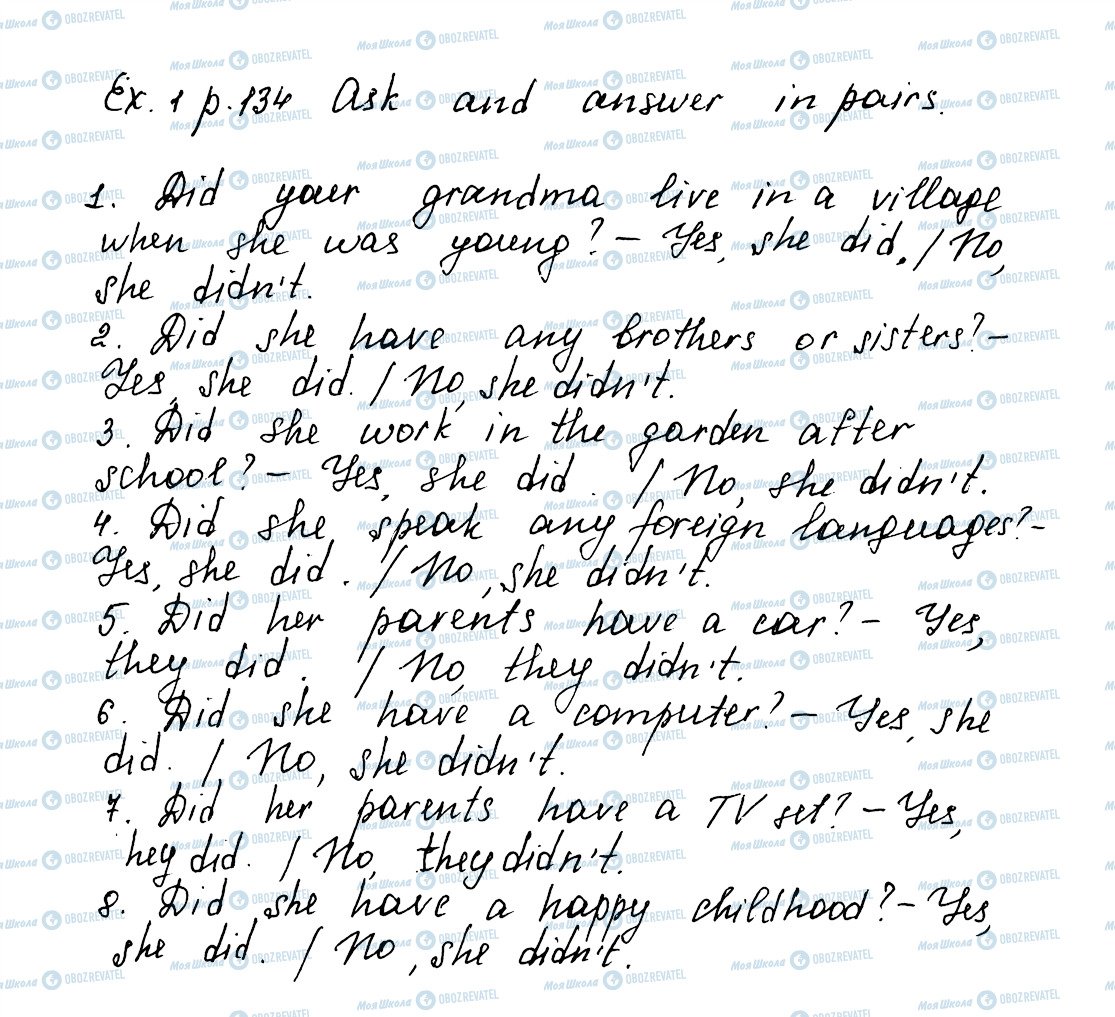 Ex. 1 p.134 Ask and answer in pairs.
1. Did your grandma live in a village
when she was young? – Yes, she did. / No,
she didn't.
2. Did she have any brothers or sisters? –
Yes, she did. / No, she didn't.
3. Did she work in the garden after
school? – Yes, she did. / No, she didn't.
4. Did she speak any foreign languages? –
Yes, she did. / No, she didn't.
5. Did her parents have a car? – Yes,
they did. / No, they didn't.
6. Did she have a computer? – Yes, she
did. / No, she didn't.
7. Did her parents have a TV set? – Yes,
hey did. / No, they didn't.
8. Did she have a happy childhood? – Yes,
she did. / No, she didn't.